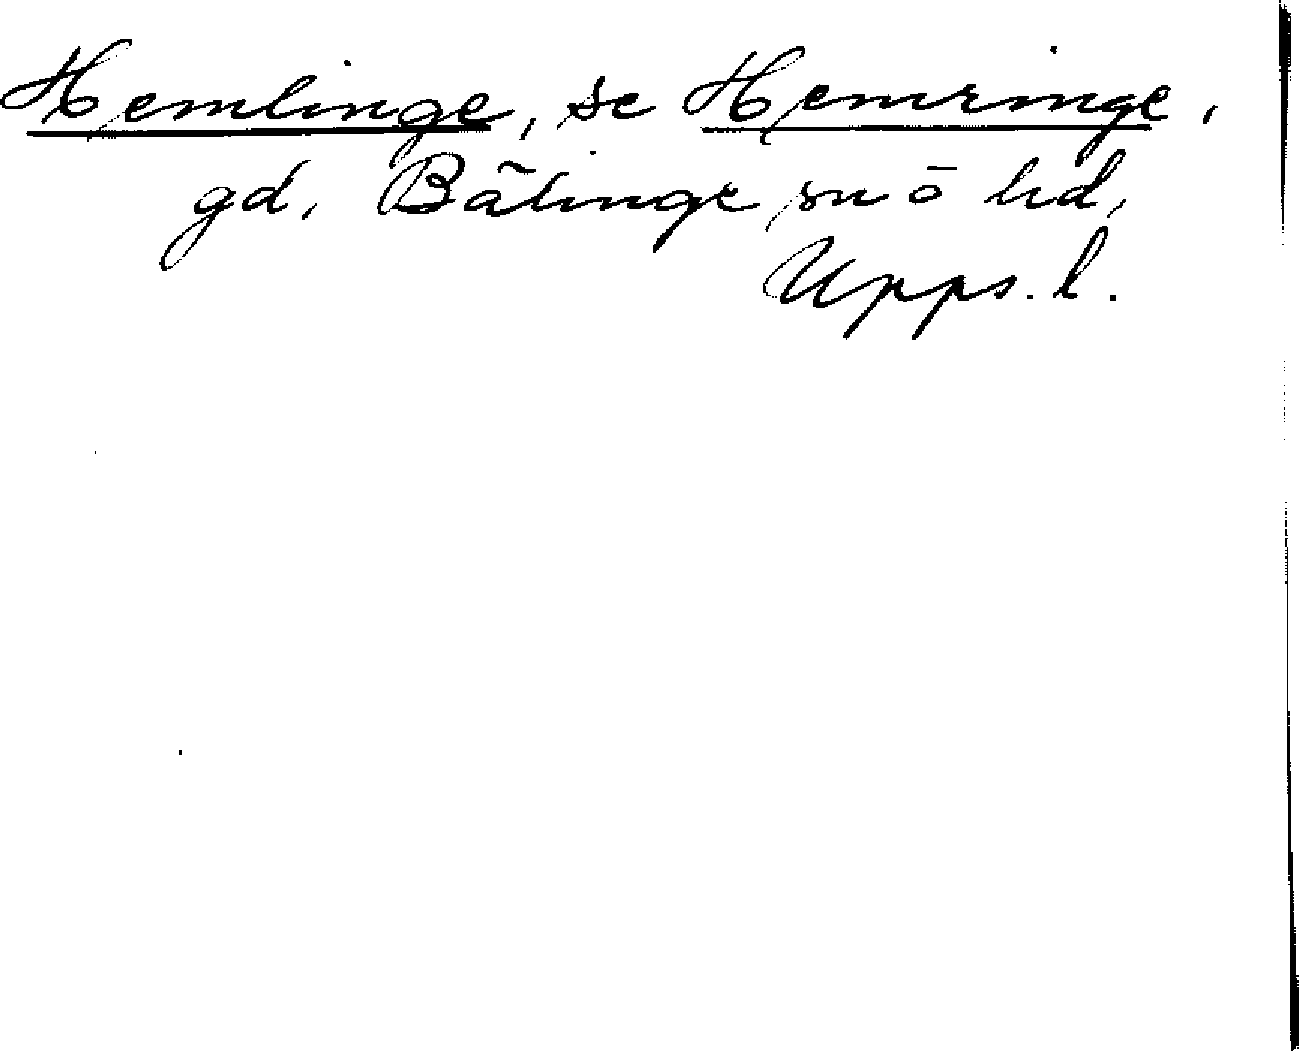 Hemlinge, se Hemringe,
gd, Bälinge sn ō hd,
Upps. l.